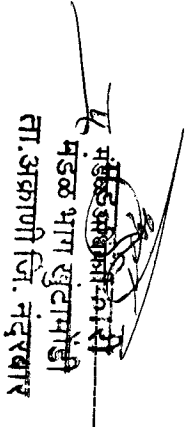 मंडळ अधिकारी
मंडळ भाग खुंटामोडी
ता.अक्राणी जि. नंदुरबार